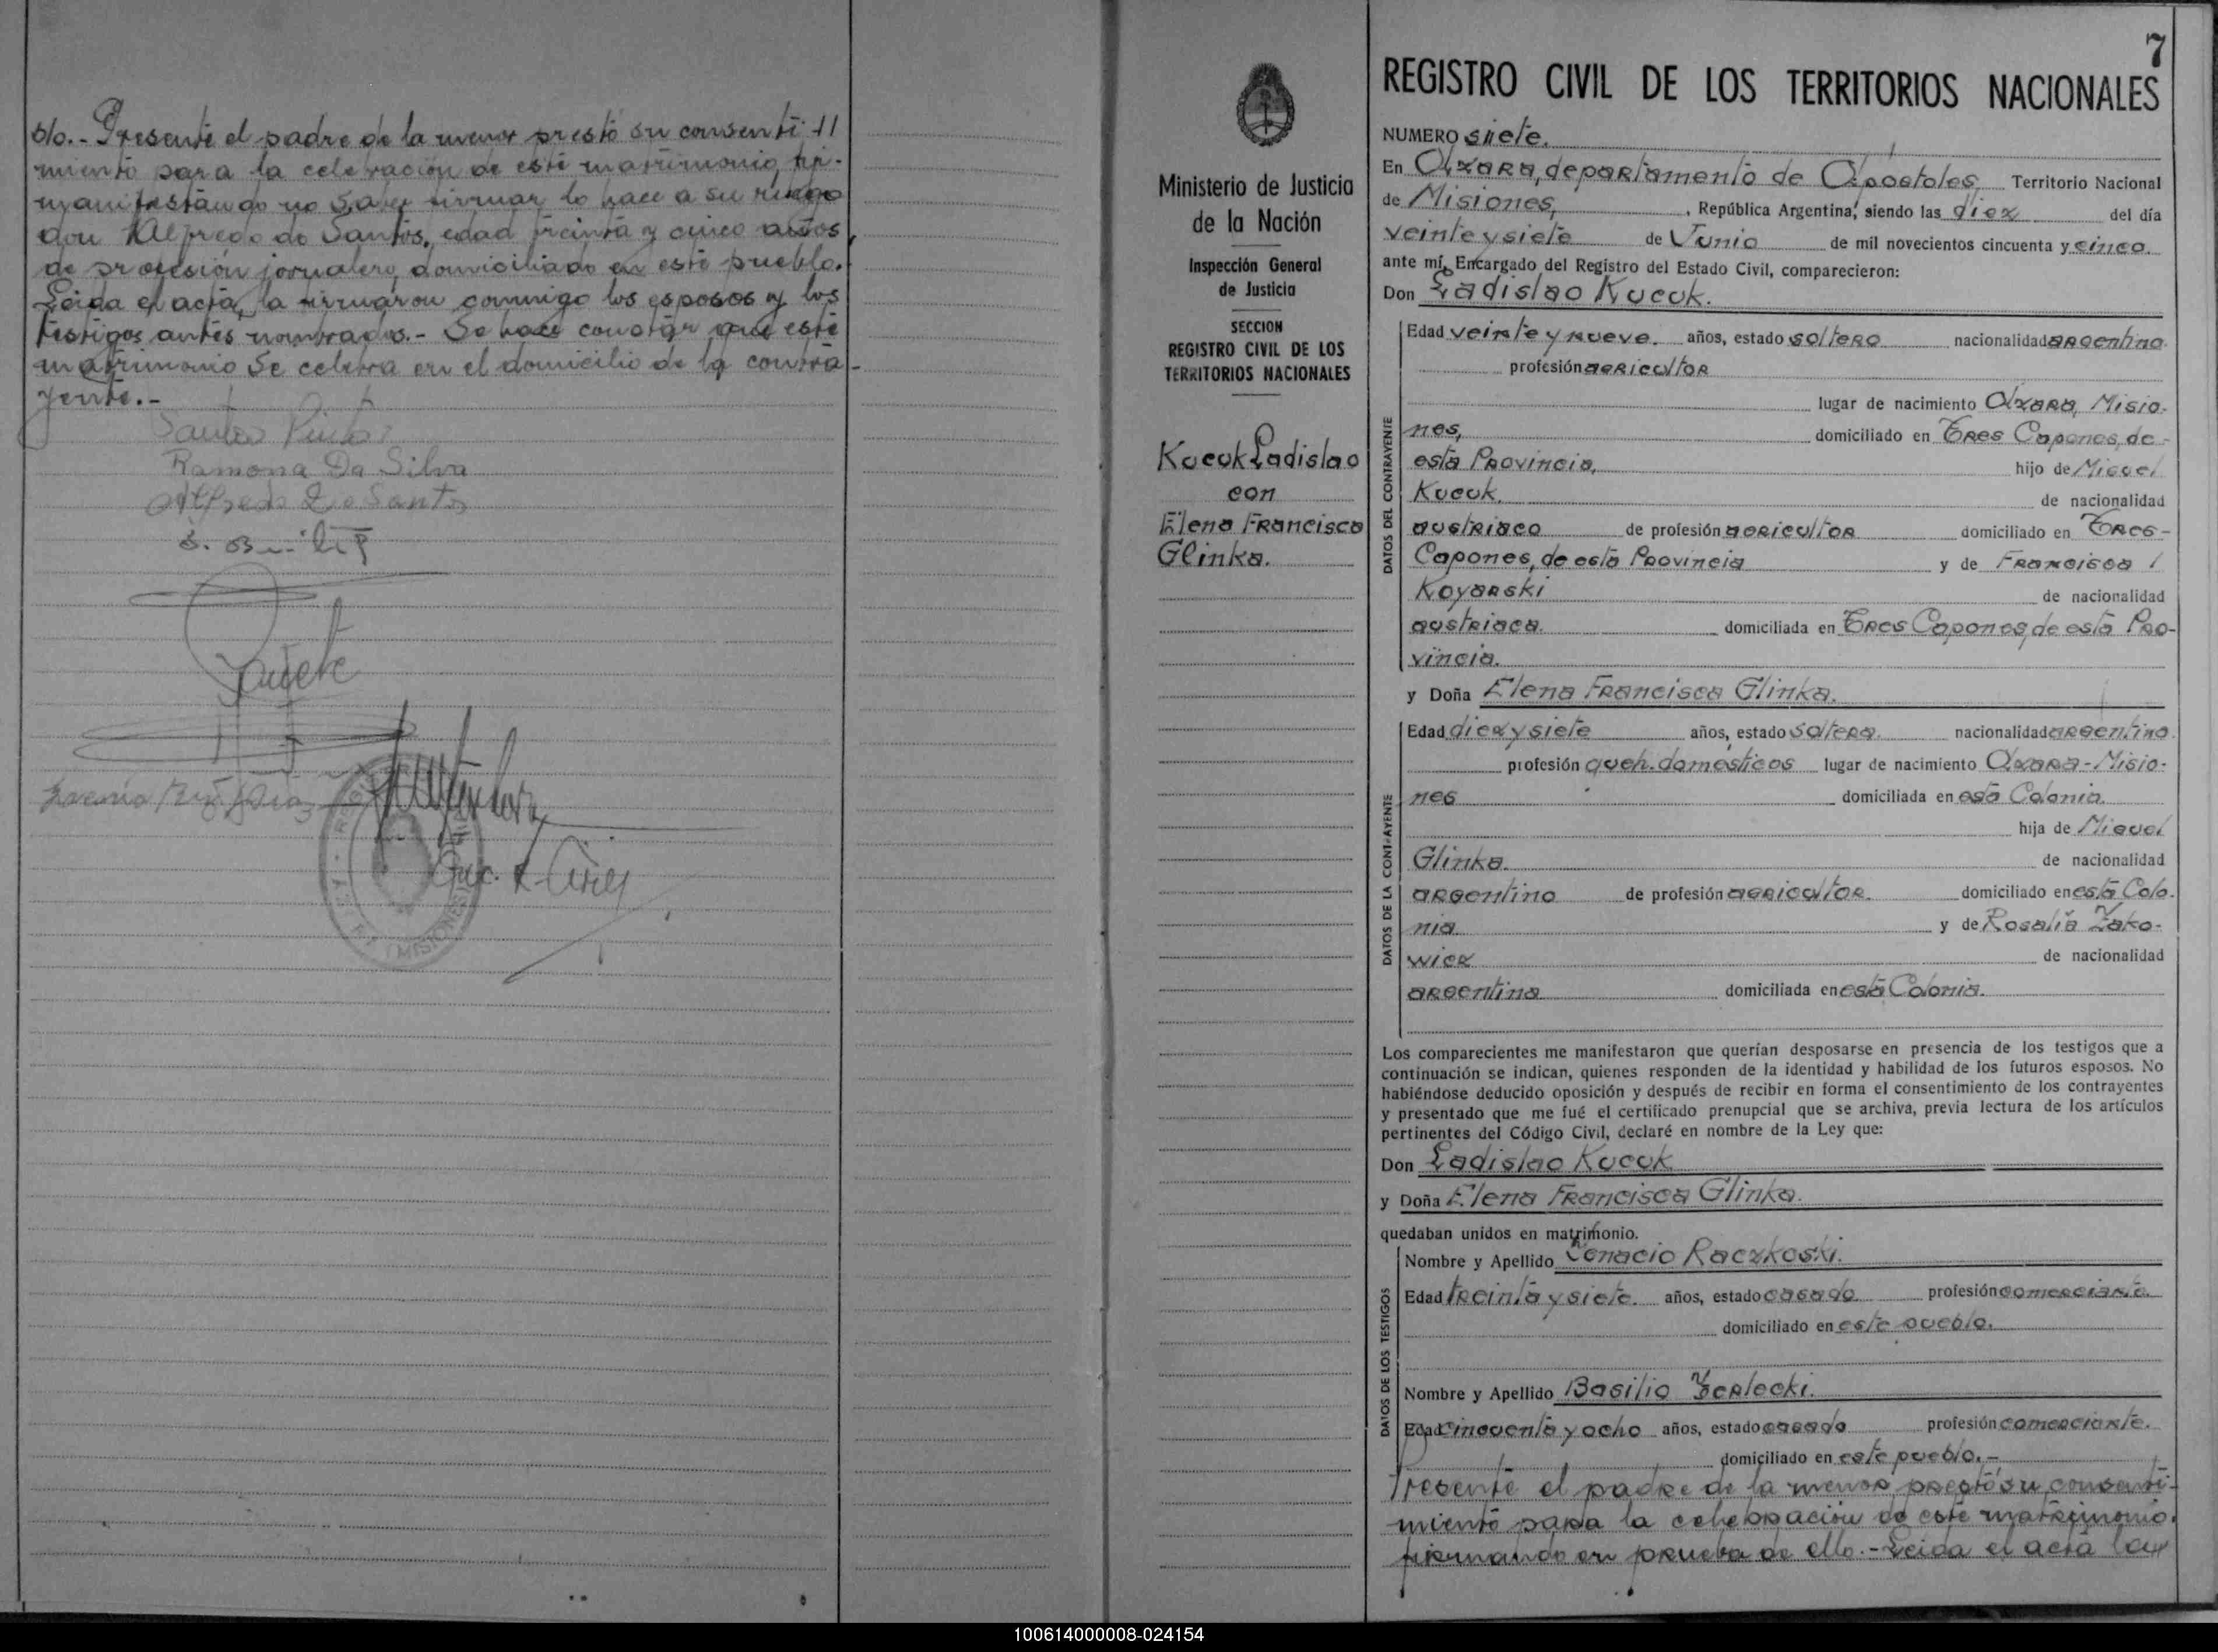 blo.- Presente el padre de la menor prestó su consenti-
miento para la celebración de este matrimonio,
manifestando no saber firmar lo hace a su ruego
don Alfredo do Santos, edad treinta y cinco años,
de profesión jornalero, domiciliado en este pueblo.
Leida el acta, la firmaron conmigo los esposos y los
testigos antes nombrados.- Se hace constar que este
matrimonio se celebra en el domicilio de la contra-
yente.-
Santos
Ramona Da Silva
Alfredo Do Santos
7
REGISTRO CIVIL DE LOS TERRITORIOS NACIONALES
Ministerio de Justicia
de la Nación
Inspección General
de Justicia
SECCION
REGISTRO CIVIL DE LOS
TERRITORIOS NACIONALES
Kucuk Ladislao
con
Elena Francisca
Glinka.
NUMERO siete.
En Azara, departamento de Apóstoles, Territorio Nacional
de Misiones, , República Argentina, siendo las diez del día
veinte y siete de Junio de mil novecientos cincuenta y cinco.
ante mí, Encargado del Registro del Estado Civil, comparecieron:
Don Ladislao Kucuk.
DATOS DEL CONTRAYENTE
Edad veinte y nueve. años, estado soltero nacionalidad argentina.
profesión agricultor
lugar de nacimiento Azara, Misio-
nes, domiciliado en Tres Capones, de
esta Provincia, hijo de Miguel
Kucuk. de nacionalidad
austriaco de profesión agricultor domiciliado en Tres-
Capones, de esta Provincia y de Francisca
Koyarski de nacionalidad
austriaca. domiciliada en Tres Capones, de esta Pro-
vincia.
y Doña Elena Francisca Glinka.
DATOS DE LA CONTRAYENTE
Edad diez y siete años, estado soltera. nacionalidad argentina.
profesión queh. domésticos lugar de nacimiento Azara-Misio-
nes domiciliada en esta Colonia.
hija de Miguel
Glinka. de nacionalidad
argentino de profesión agricultor. domiciliado en esta Colo-
nia y de Rosalía Zako-
wicz de nacionalidad
argentina domiciliada en esta Colonia.
Los comparecientes me manifestaron que querían desposarse en presencia de los testigos que a
continuación se indican, quienes responden de la identidad y habilidad de los futuros esposos. No
habiéndose deducido oposición y después de recibir en forma el consentimiento de los contrayentes
y presentado que me fué el certificado prenupcial que se archiva, previa lectura de los artículos
pertinentes del Código Civil, declaré en nombre de la Ley que:
Don Ladislao Kucuk
y Doña Elena Francisca Glinka.
quedaban unidos en matrimonio.
DATOS DE LOS TESTIGOS
Nombre y Apellido Ignacio Raczkoski.
Edad treinta y siete. años, estado casado profesión comerciante.
domiciliado en este pueblo.
Nombre y Apellido Basilio Zerlecki.
Edad cincuenta y ocho años, estado casado profesión comerciante.
domiciliado en este pueblo.-
Presente el padre de la menor prestó su consenti-
miento para la celebración de este matrimonio,
firmando en prueba de ello.- Leida el acta la
100614000008-024154